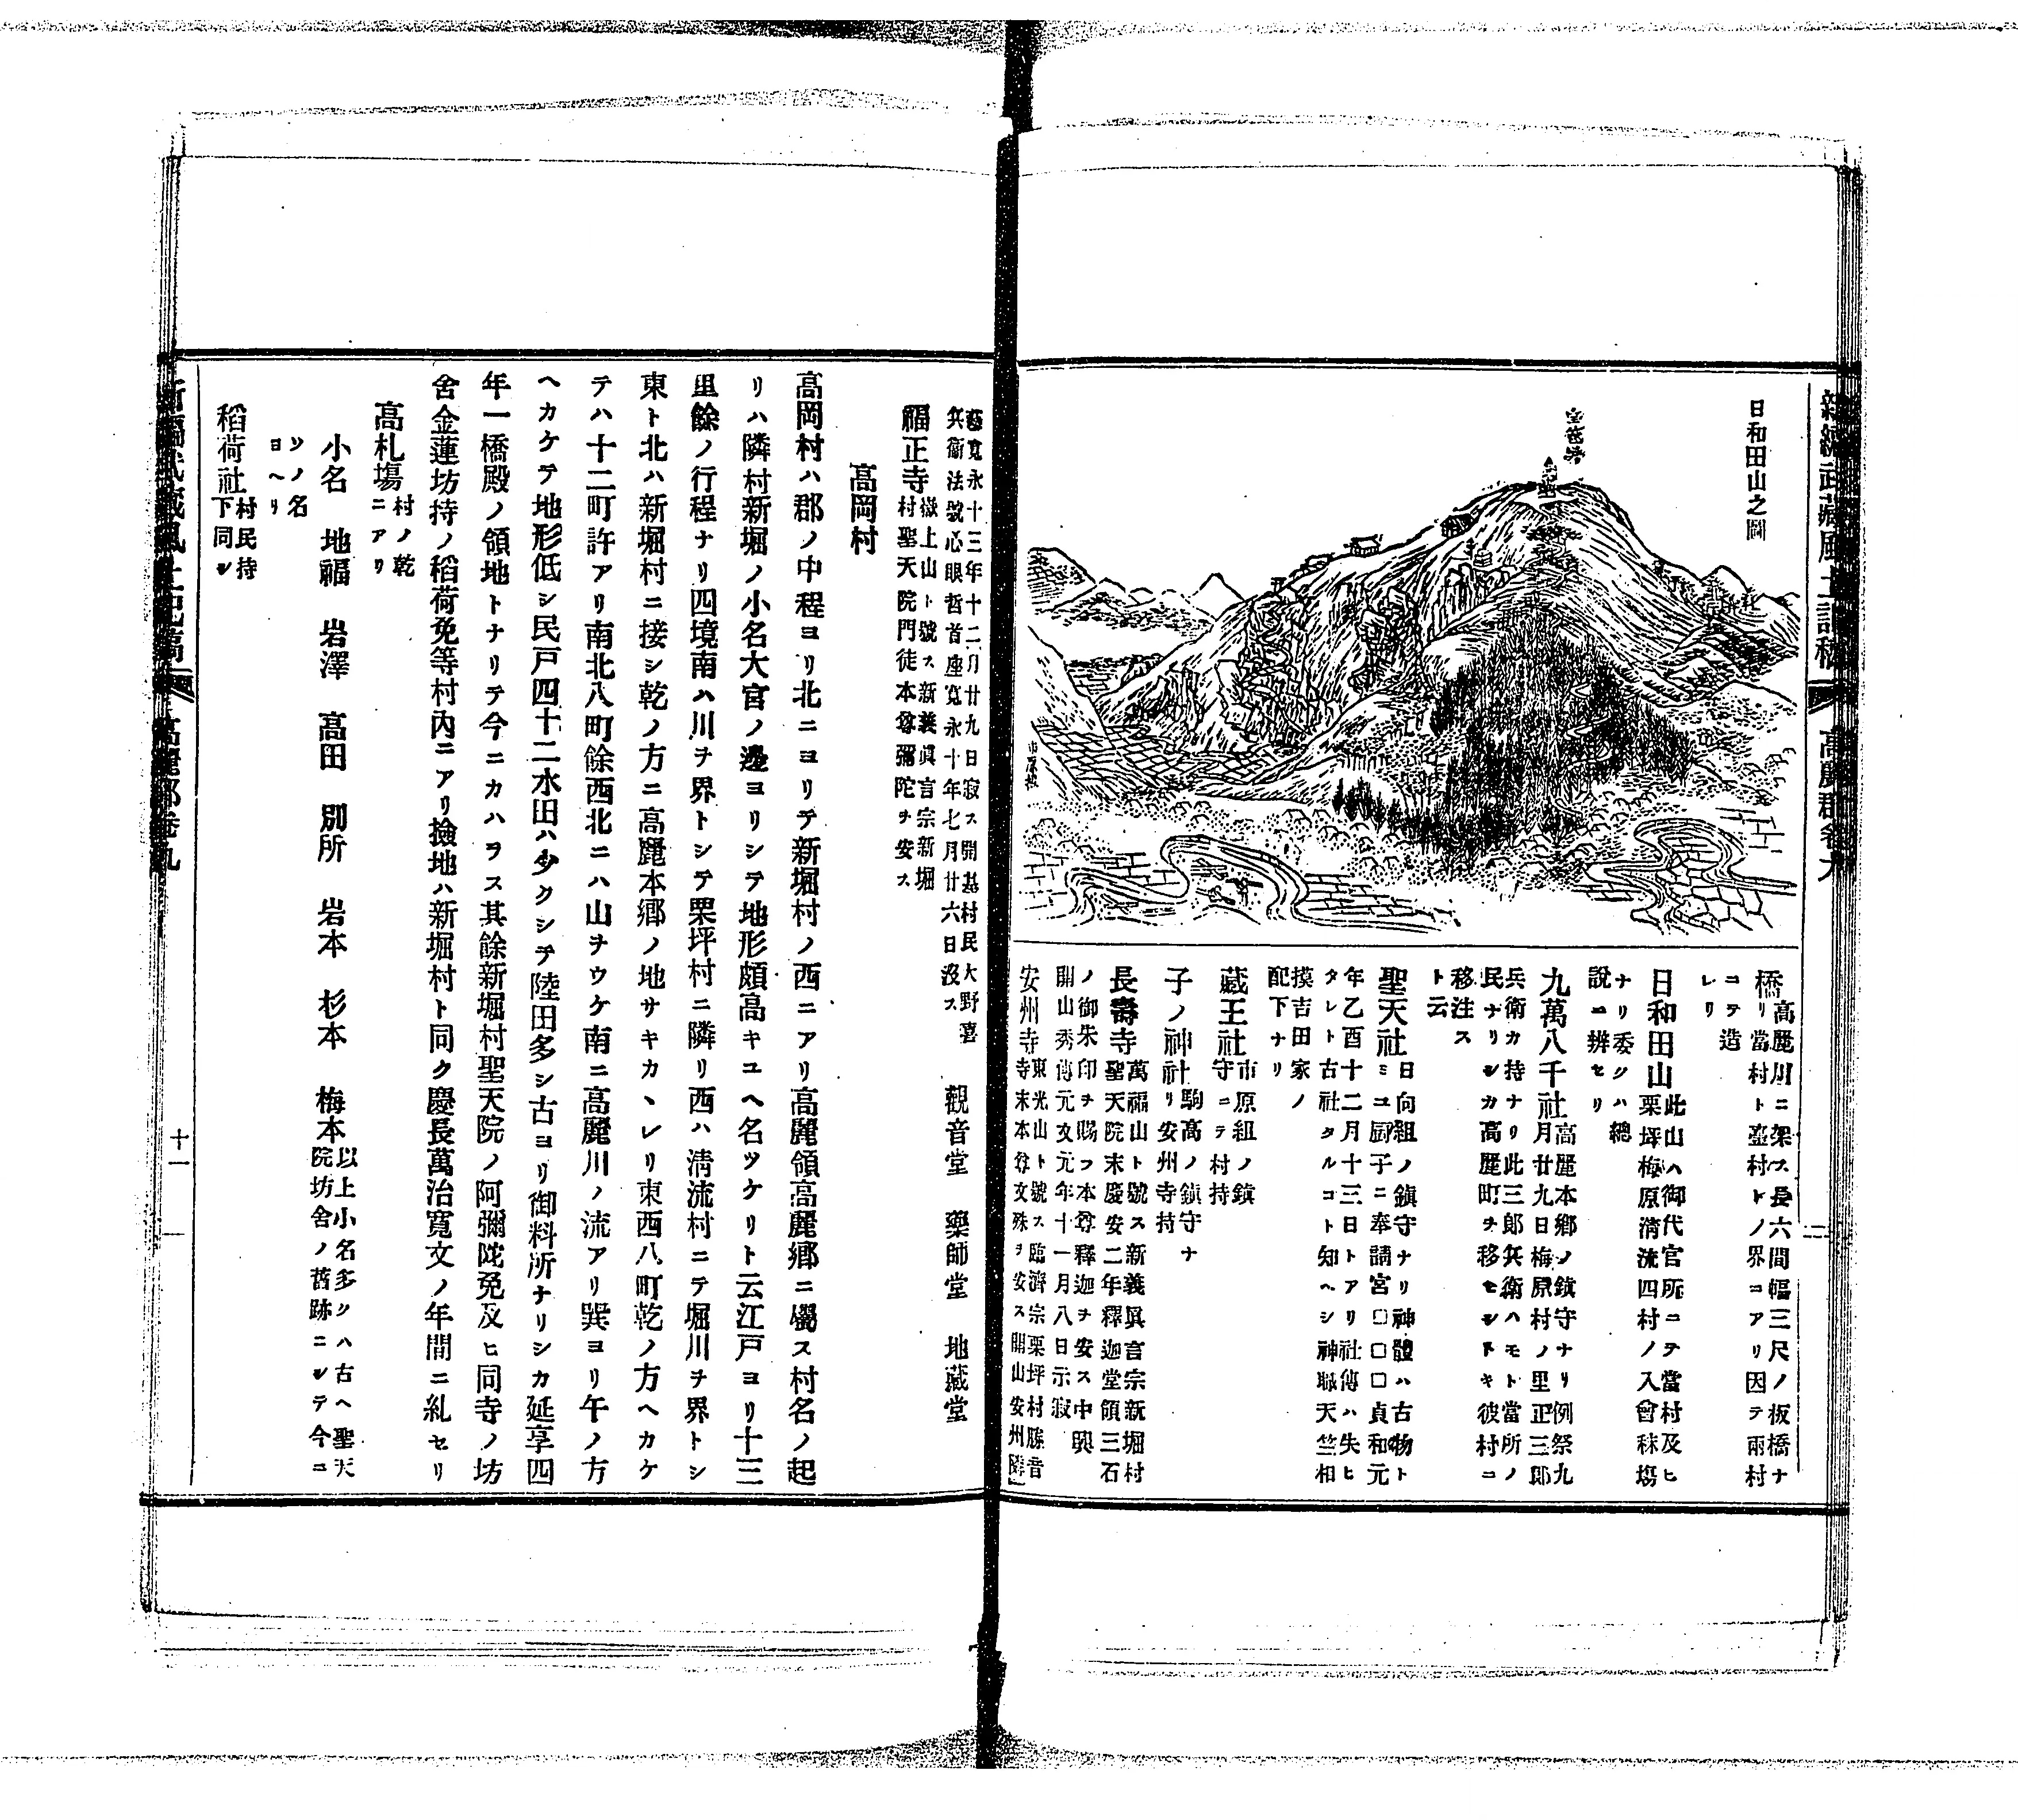 新編武藏風土記稿 高麗郡卷九
日和田山之圖
橋
高麗川ニ架ス長六間幅三尺ノ板橋ナ
リ當村ト臺村トノ界コアリ因テ兩村
コテ造
レリ
日和田山
此山ハ御代官所ニテ當村及ヒ
栗坪梅原淸流四村ノ入會秣塲
ナリ委シハ總
說ニ辨セリ
九萬八千社
高麗本鄕ノ鎭守ナリ例祭九
月廿九日梅原村ノ里正三郎
兵衛カ持ナリ此三郎兵衛ハモト當所ノ
民ナリシカ高麗町ヲ移セシトキ彼村ニ
移注ス
ト云
聖天社
日向組ノ鎭守ナリ神體ハ古物ト
ミユ厨子ニ奉請宮□□□□貞和元
年乙酉十二月十三日トアリ社傳ハ失ヒ
タレト古社タルコト知ヘシ神職天竺相
摸吉田家ノ
配下ナリ
藏王社
市原組ノ鎭
守ニテ村持
子ノ神社
駒高ノ鎭守ナ
リ安州寺持
長壽寺
萬福山ト號ス新義眞言宗新堀村
聖天院末慶安二年釋迦堂領三石
ノ御朱印ヲ賜フ本尊釋迦ヲ安ス中興
開山秀傳元文元年十一月八日示寂
安州寺
東光山ト號ス臨濟宗栗坪村勝音
寺末本尊文殊ヲ安ス開山安州隣
藝寬永十三年十二月廿九日寂ス開基村民大野喜
兵衛法號心眼哲首座寬永十年七月廿六日沒ス
觀音堂 藥師堂 地藏堂
福正寺
嶽上山ト號ス新義眞言宗新堀
村聖天院門徒本尊彌陀ヲ安ス
高岡村
高岡村ハ郡ノ中程ヨリ北ニヨリテ新堀村ノ西ニアリ高麗領高麗鄕ニ屬ス村名ノ起
リハ隣村新堀ノ小名大宮ノ邊ヨリシテ地形頗高キユヘ名ツケリト云江戸ヨリ十三
里餘ノ行程ナリ四境南ハ川ヲ界トシテ栗坪村ニ隣リ西ハ淸流村ニテ堀川ヲ界トシ
東ト北ハ新堀村ニ接シ乾ノ方ニ高麗本鄕ノ地サキカヽレリ東西八町乾ノ方ヘカケ
テハ十二町許アリ南北八町餘西北ニハ山ヲウケ南ニ高麗川ノ流アリ巽ヨリ午ノ方
ヘカケテ地形低シ民戸四十二水田ハ少クシテ陸田多シ古ヨリ御料所ナリシカ延享四
年一橋殿ノ領地トナリテ今ニカハラス其餘新堀村聖天院ノ阿彌陀免及ヒ同寺ノ坊
舍金蓮坊持ノ稻荷免等村內ニアリ撿地ハ新堀村ト同ク慶長萬治寬文ノ年間ニ糺セリ
高札塲
村ノ乾
ニアリ
小名 地福 岩澤 高田 別所 岩本 杉本 梅本
以上小名多クハ古ヘ聖天
院坊舍ノ舊跡ニシテ今ニ
ソノ名
ヨヘリ
稻荷社
村民持
下同シ
新編武藏風土記稿 高麗郡卷九
十一